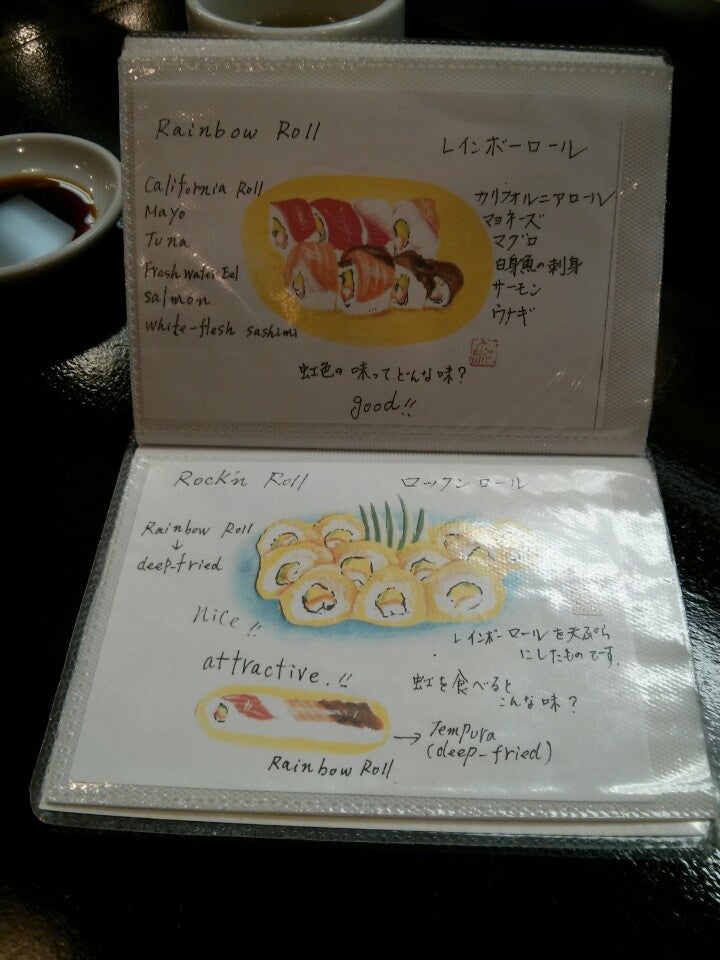 Rainbow Roll
レインボーロール
California Roll
Mayo
Tuna
Fresh water Eel
salmon
white-flesh sashimi
カリフォルニアロール
マヨネーズ
マグロ
白身魚の刺身
サーモン
ウナギ
虹色の味ってどんな味?
good!!
Rock'n Roll
ロックンロール
Rainbow Roll
↓
deep-fried
Nice!!
attractive.!!
レインボーロールを天ぷら
にしたものです.
虹を食べると
こんな味?
→ Tempura
(deep-fried)
Rainbow Roll